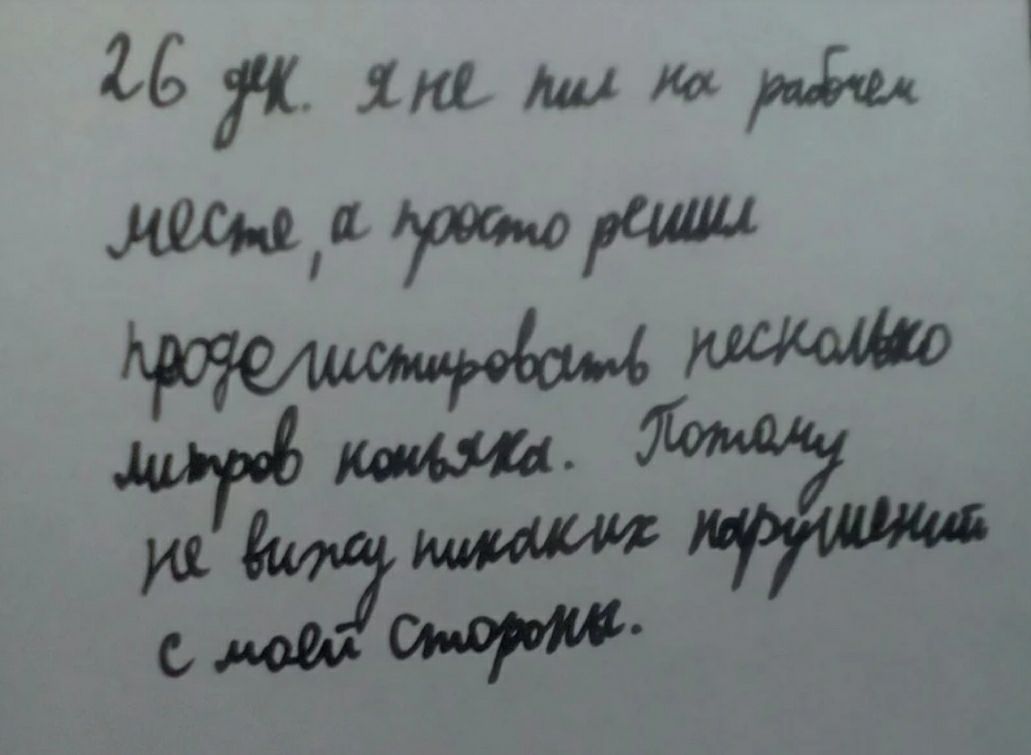 26 дек. я не пил на рабочем
месте, а просто решил
продегистировать несколько
литров коньяка. Потому
не вижу никаких нарушений
с моей стороны.